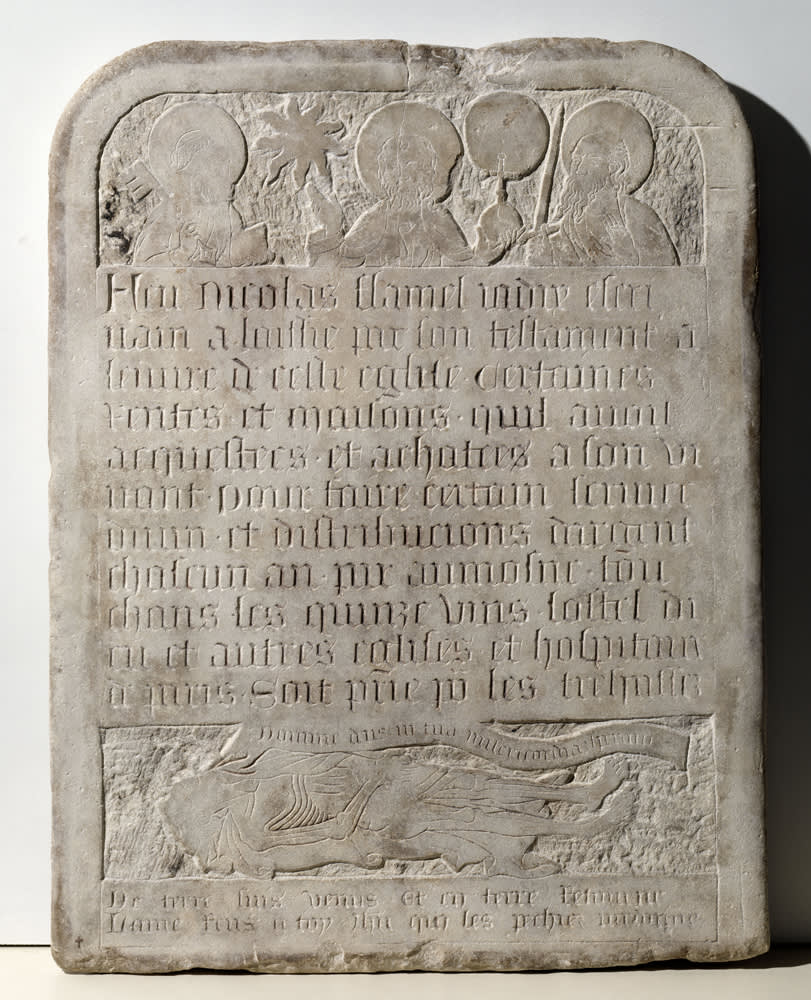 Feu Nicolas flamel iadiz escri
uain a laissie par son testament a
leuure de ceste eglise · Certaines
rentes et maisons · quil auoit
acquestees · et achatees a son vi
uant · pour faire certain seruice
diuin · et distribucions dargent
chascun an · par aumosne · tou
chans les quinze vins · lostel di
eu et autres eglises et hospitaux
de paris · Soit prie po les trespassez
Domine deus in tua misericordia speraui
De terre suis venus Et en terre Retourne
Lame rens a toy qui les pechiez pardonne